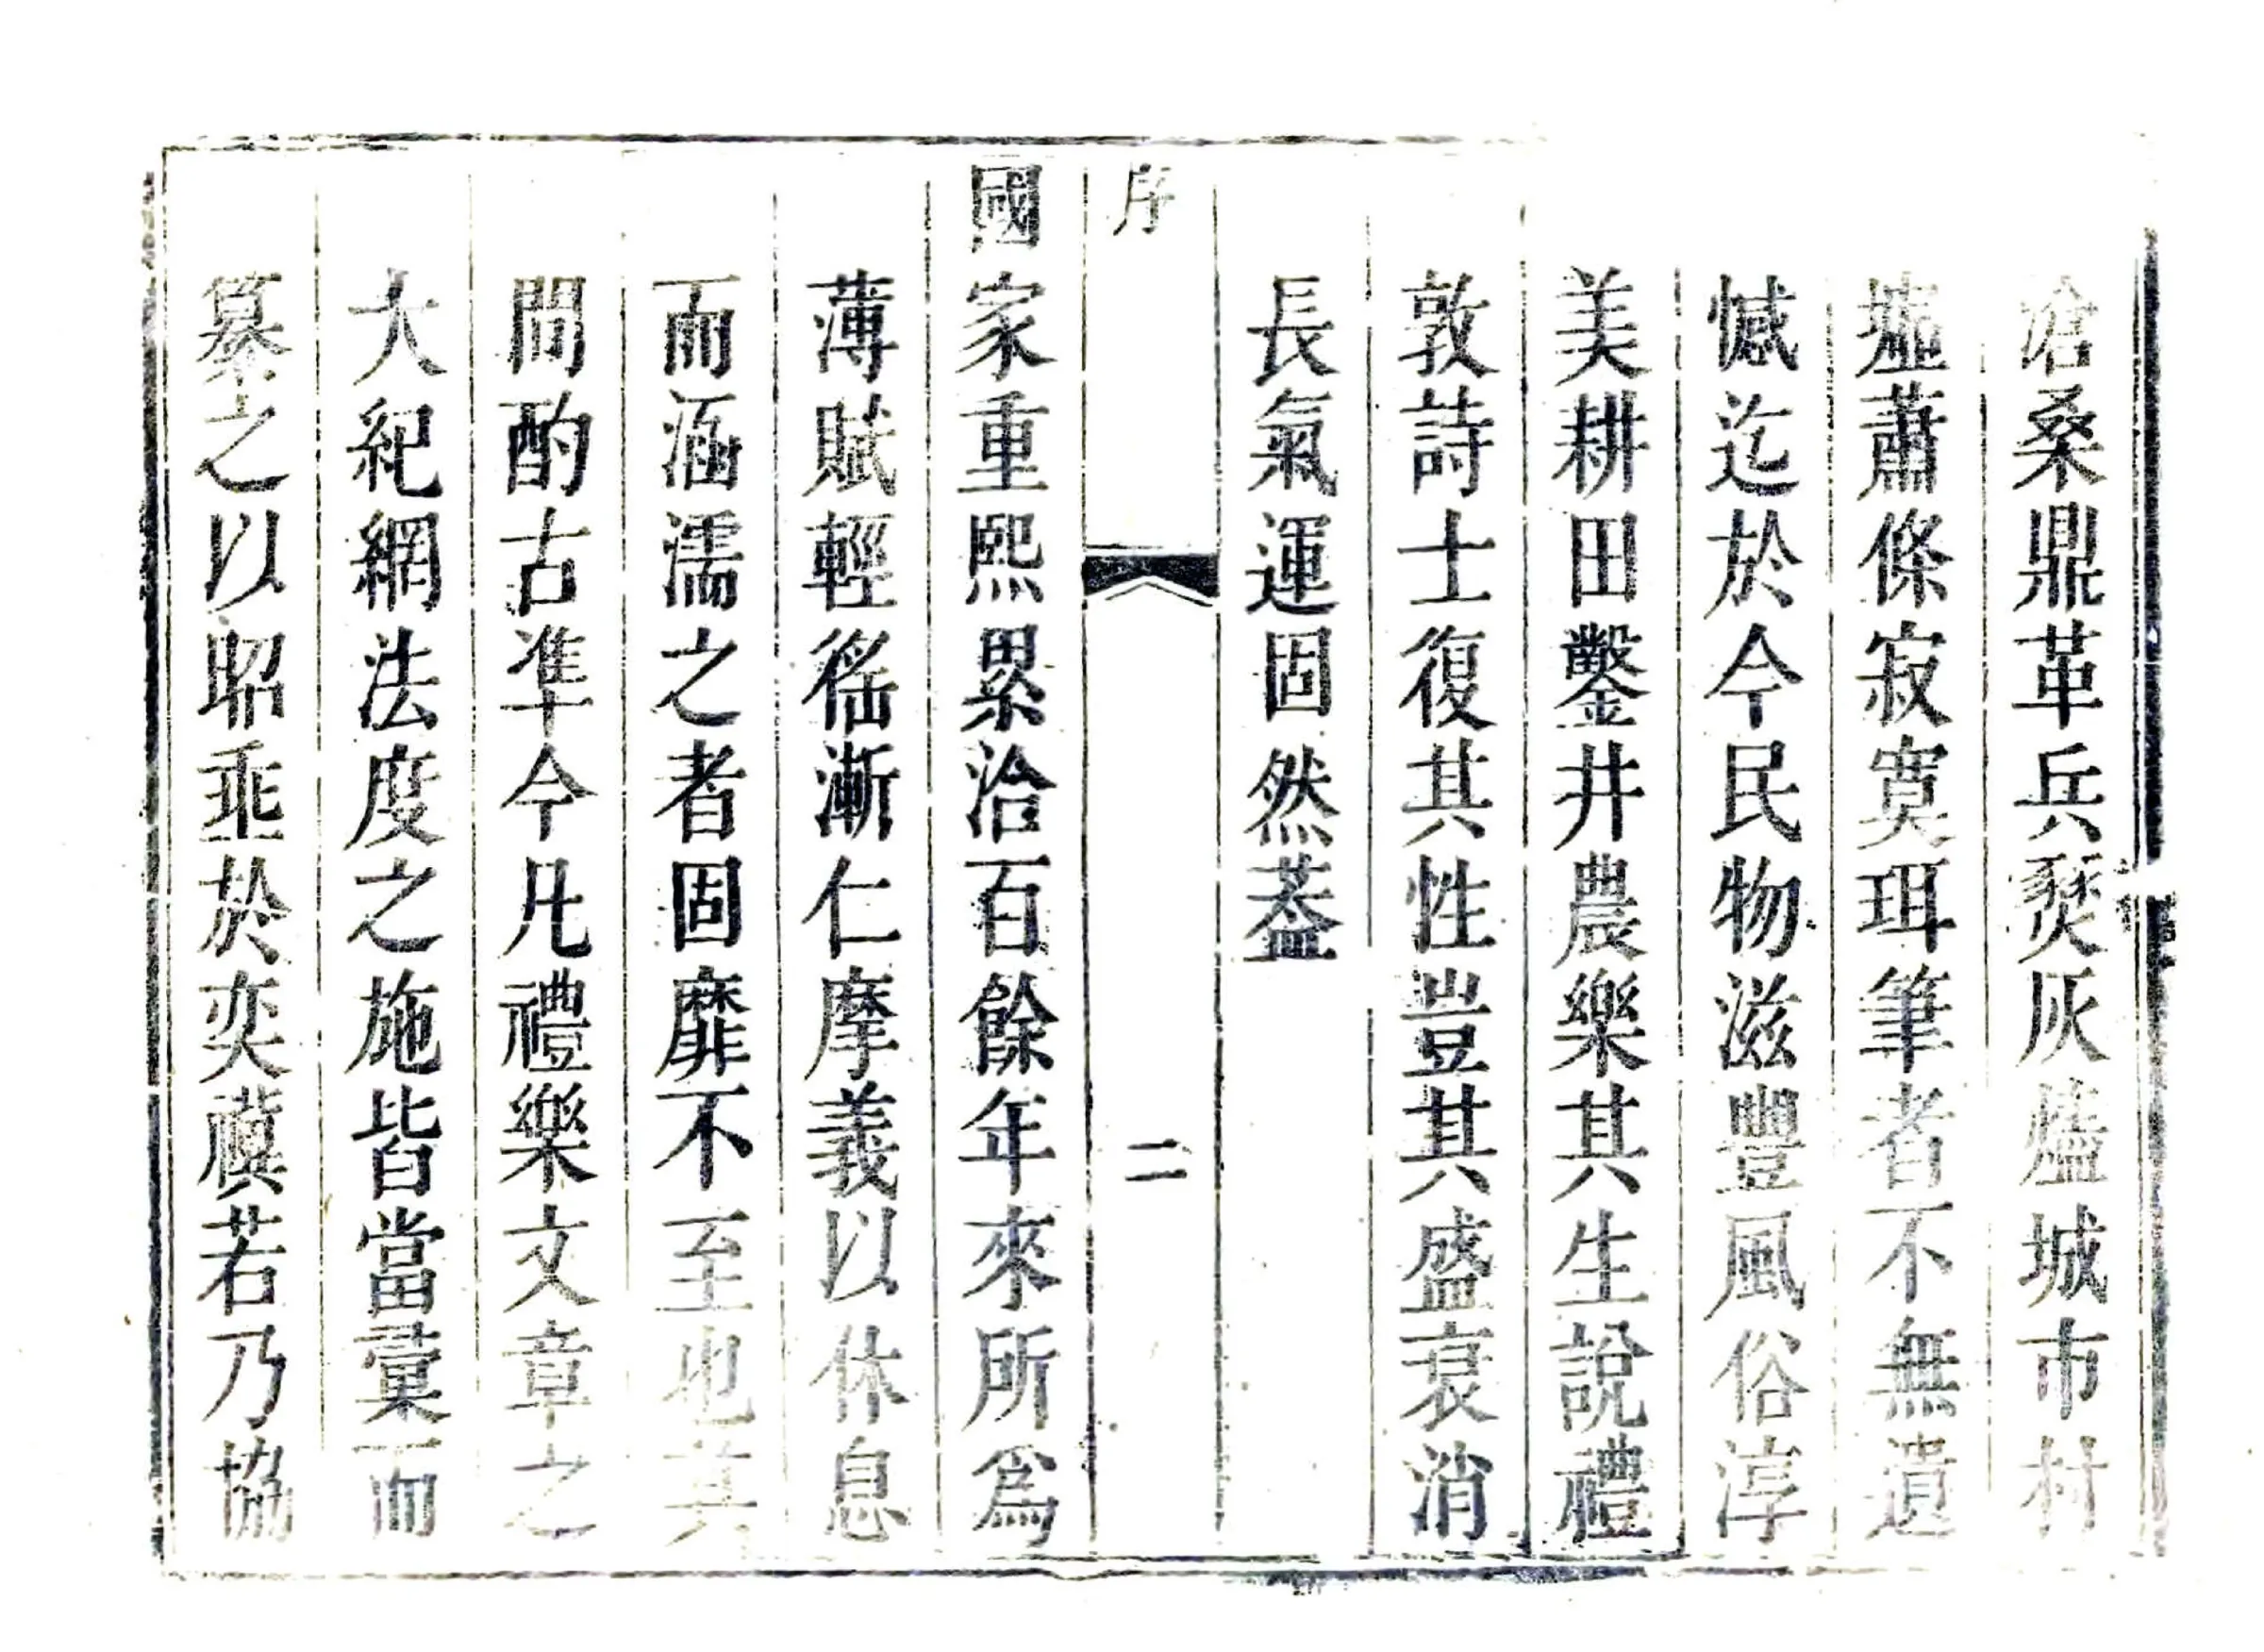 滄桑鼎革兵燹灰燼城市村
墟蕭條寂寞珥筆者不無遺
憾迄於今民物滋豐風俗淳
美耕田鑿井農樂其生說禮
敦詩士復其性豈其盛衰消
長氣運固然葢
序
二
國家重熙累洽百餘年來所爲
薄賦輕徭漸仁摩義以休息
而涵濡之者固靡不至也其
間酌古凖今凡禮樂文章之
大紀綱法度之施皆當彙而
纂之以昭垂於奕禩若乃協